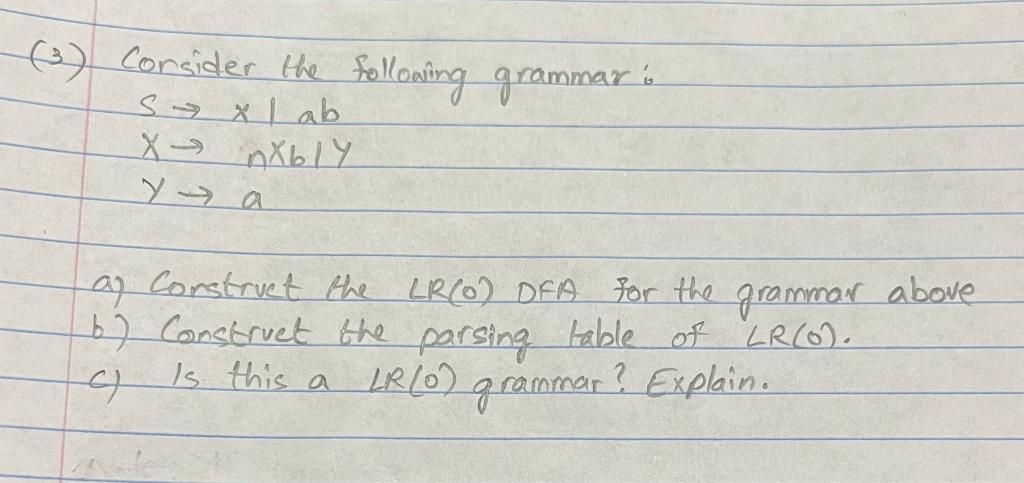 (3) Consider the following grammar:
S → x | ab
X → nXb | Y
Y → a
a) Construct the LR(0) DFA for the grammar above
b) Construct the parsing table of LR(0).
c) Is this a LR(0) grammar? Explain.